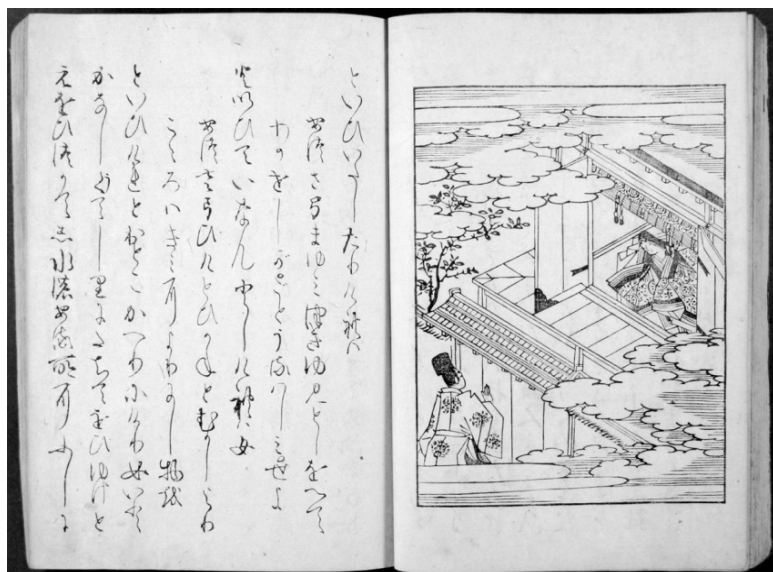 といひいたしたりけれは
あつさ弓まゆみつきゆみとしをへて
わかせしかことうるはしみせよ
といひていなんとしけれは女
あつさ弓ひけとひかねとむかしより
こころはきみによりにし物を
といひけれとおとこかへりにけり女いと
かなしくてしりにたちてをひゆけと
えをひつかてし水のある所にふしに